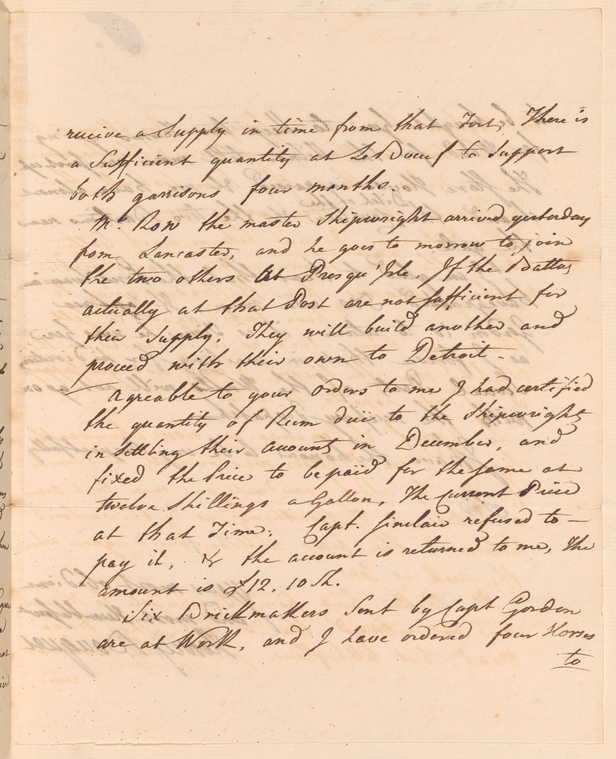 receive a Supply in time from that Fort; There is
a Sufficient quantity at Le Boeuf to Support
both garrisons four months.
Mr. Row the master Shipwright arrived yesterday
from Lancaster, and he goes to morrow to join
the two others at Presqu'Isle. If the Battos
actually at that Post are not sufficient for
their Supply, They will build another and
proceed with their own to Detroit.
Agreable to your Orders to me I had certified
the quantity of Rum due to the Shipwrights
in settling their accounts in December, and
fixed the Price to be paid for the same at
twelve Shillings a Gallon, The Current Price
at that Time: Capt. Sinclair refused to
pay it, & the account is returned to me, The
amount is £12. 10 Sh.
Six Brickmakers Sent by Capt Gordon
are at Work, and I have ordered four Horses
to